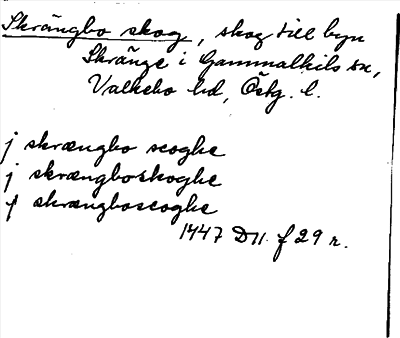 Skrängbo skog, skog till byn
Skränge i Gammalkils sn,
Valkebo hd, Östg. l.
j skrængbo scoghe
j skrængboskoghe
j skrængboscoghe
1447 D11. f 29 r.